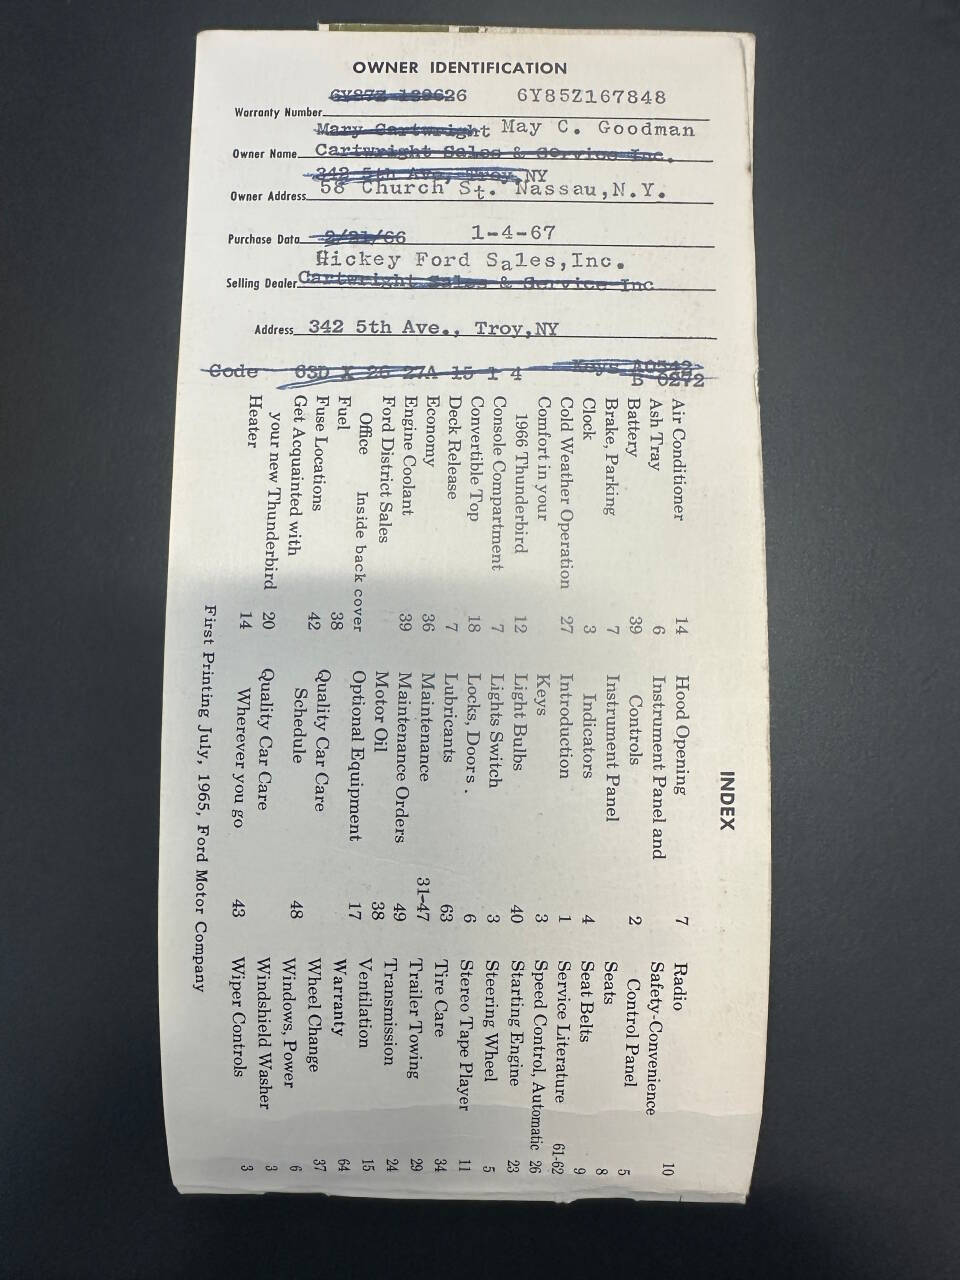 OWNER IDENTIFICATION
6Y87Z 129626 6Y85Z167848
Warranty Number
Mary Cartwright May C. Goodman
Owner Name Cartwright Sales & Service Inc.
342 5th Ave, Troy, NY
Owner Address 58 Church St. Nassau, N.Y.
Purchase Data 2/21/66 1-4-67
Hickey Ford Sales, Inc.
Selling Dealer Cartwright Sales & Service Inc
Address 342 5th Ave., Troy, NY
Code 63D X 26 27A 15 1 4 Keys A0542
B 0272
INDEX
Air Conditioner 14
Ash Tray 6
Battery 39
Brake, Parking 7
Clock 3
Cold Weather Operation 27
Comfort in your
1966 Thunderbird 12
Console Compartment 7
Convertible Top 18
Deck Release 7
Economy 36
Engine Coolant 39
Ford District Sales
Office Inside back cover
Fuel 38
Fuse Locations 42
Get Acquainted with
your new Thunderbird 20
Heater 14
Hood Opening 7
Instrument Panel and
Controls 2
Instrument Panel
Indicators 4
Introduction 1
Keys 3
Light Bulbs 40
Lights Switch 3
Locks, Dors . 6
Lubricants 63
Maintenance 31-47
Maintenance Orders 49
Motor Oil 38
Optional Equipment 17
Quality Car Care
Schedule 48
Quality Car Care
Wherever you go 43
Radio 10
Safety-Convenience
Control Panel 5
Seats 8
Seat Belts 9
Service Literature 61-62
Speed Control, Automatic 26
Starting Engine 23
Steering Wheel 5
Stereo Tape Player 11
Tire Care 34
Trailer Towing 29
Transmission 24
Ventilation 15
Warranty 64
Wheel Change 37
Windows, Power 6
Windshield Washer 3
Wiper Controls 3
First Printing July, 1965, Ford Motor Company